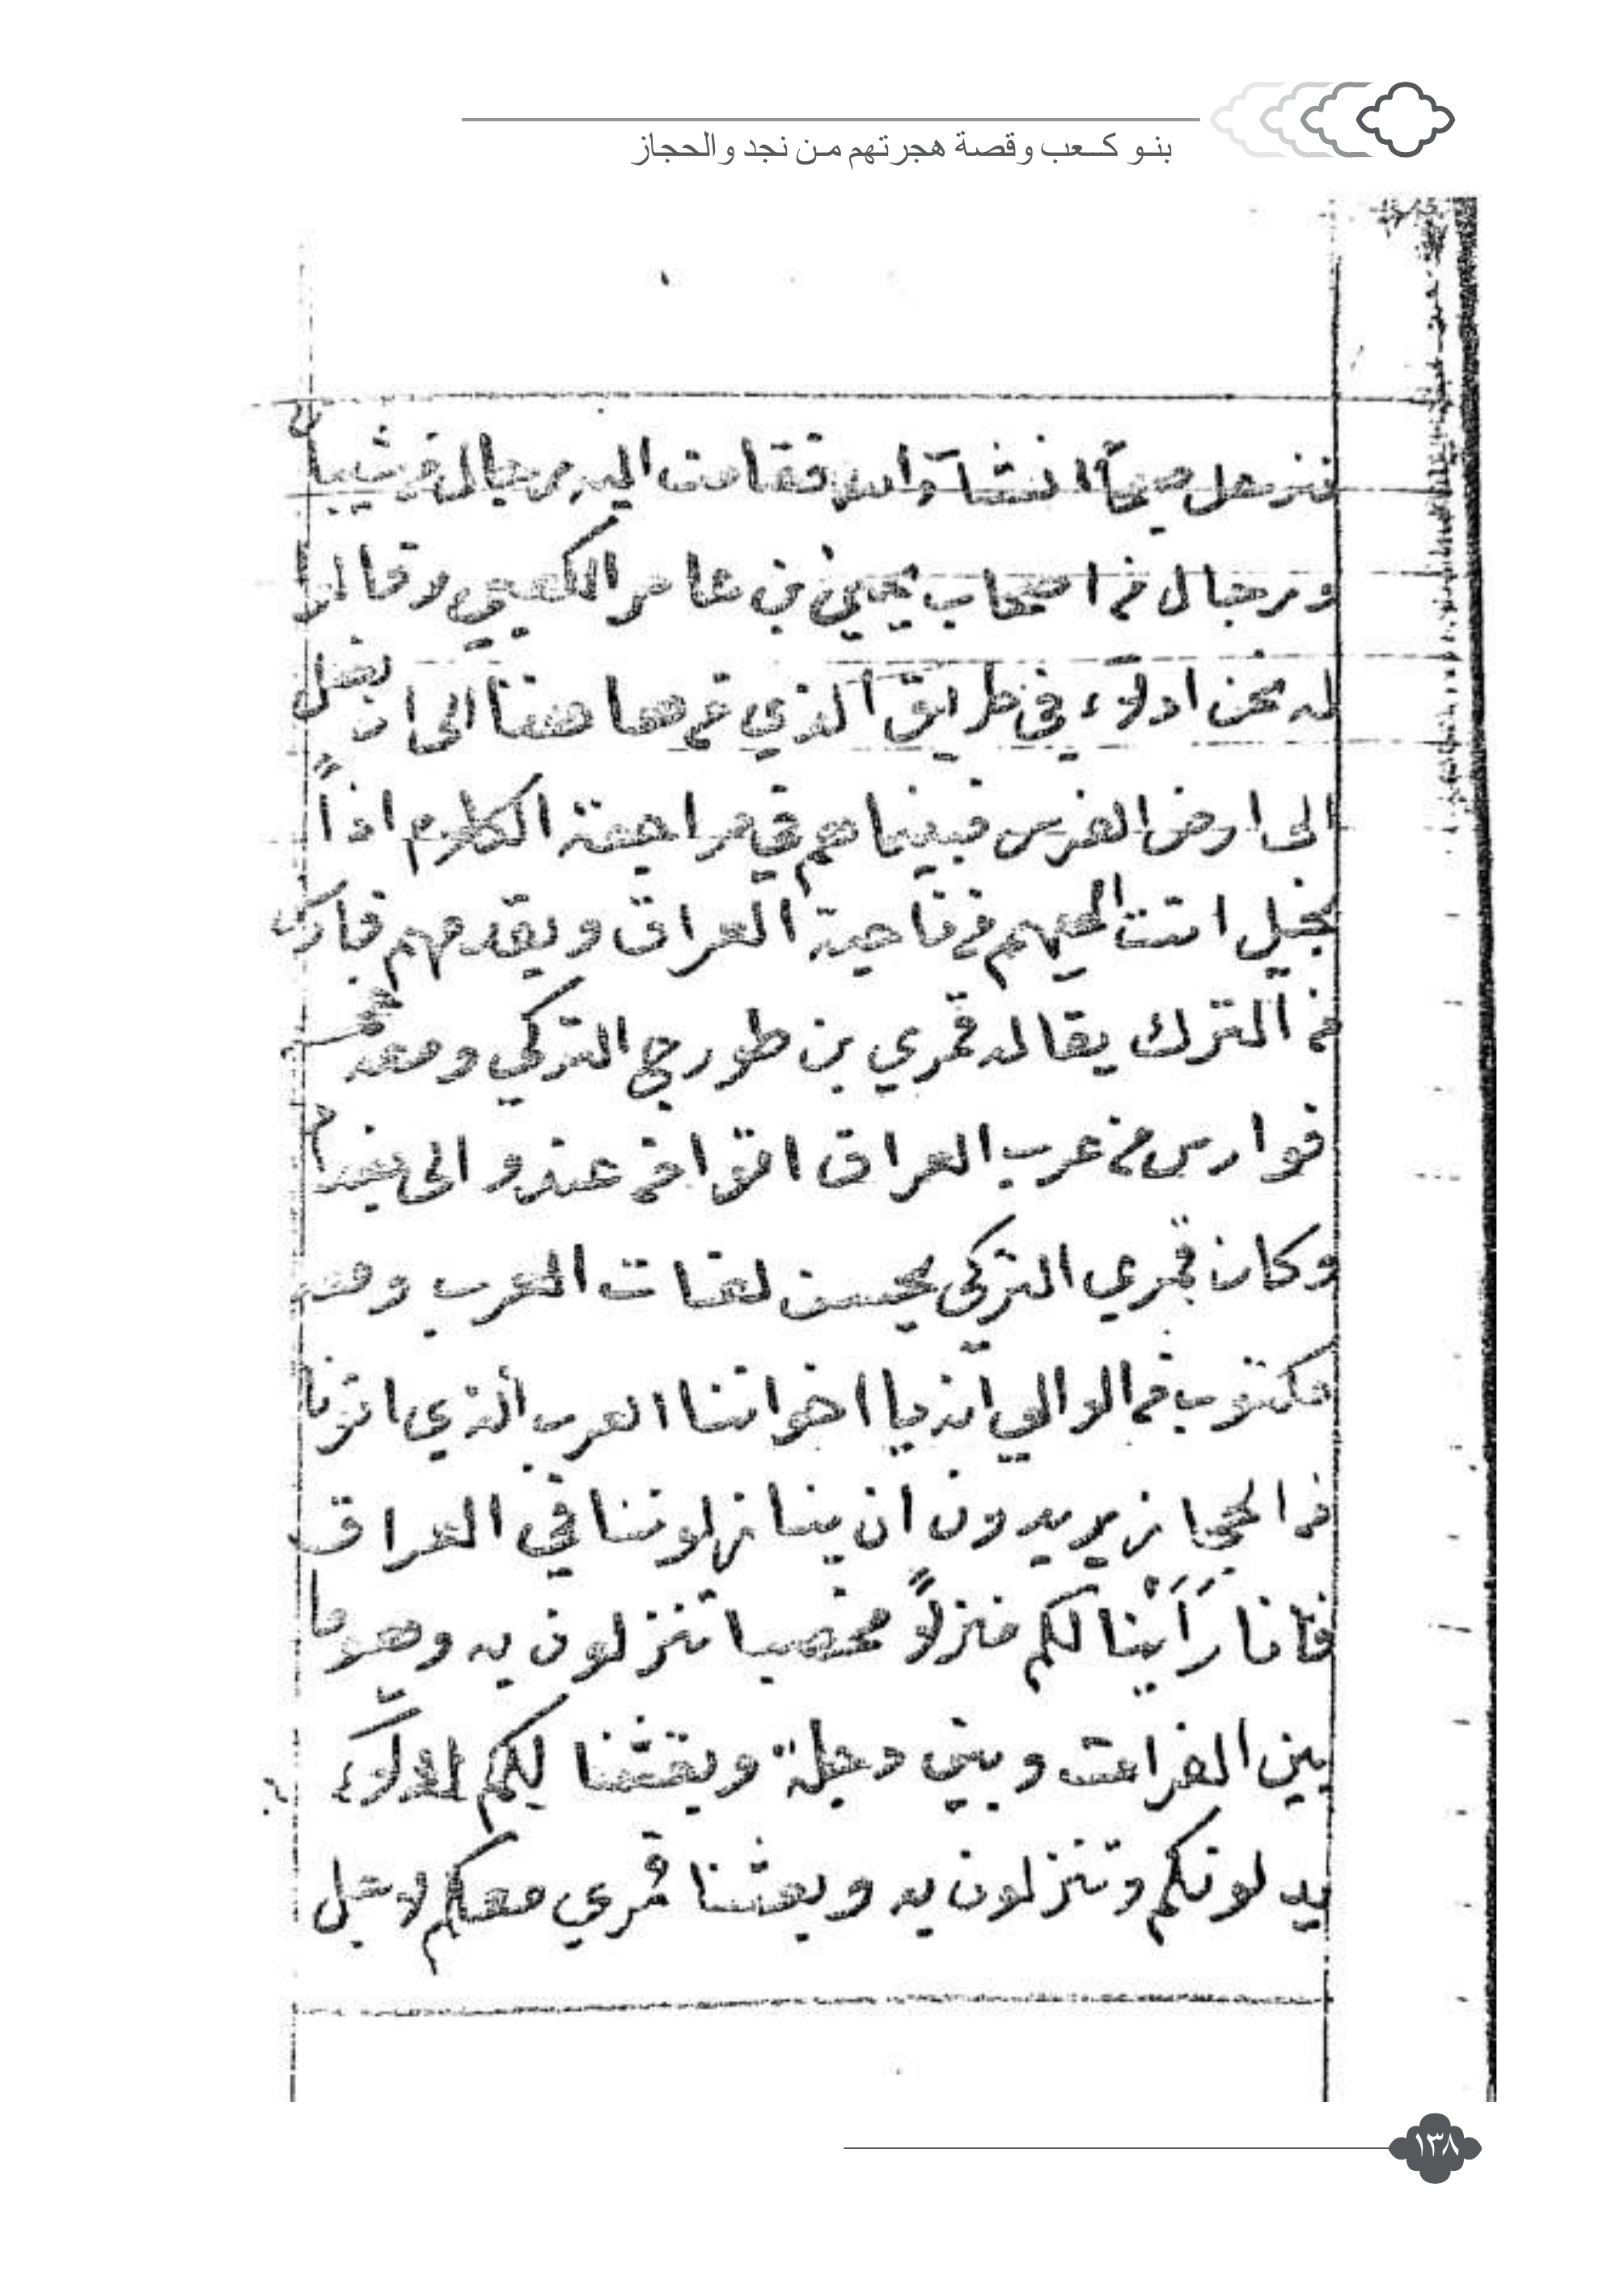 بنو كعب وقصة هجرتهم من نجد والحجاز
فنزحل صبحاً انشآء الله فقامت اليه رجال من شيبان
ورجال من اصحاب يحيى بن عامر الكعبي وقالوا
له نحن ادلاء في طريق الذي من هاهنا الى ان نصل
الى ارض الفرس فبينما هم في مراجعة الكلام اذاً
بخيل اتت اليهم من ناحية العراق ويقدمهم فارس
من الترك يقاله قمري بن طورج التركي ومعه خمس
فوارس من عرب العراق اتوا من عند والى بغداد
وكان قمري التركي يحسن لغات العرب ومعه
مكتوب من الوالي انه يا اخواننا العرب الذي اتونا
من الحجاز يريدون ان ينازلوننا في العراق
فاننا رَأَيْنا لكم منزلاً مخصبا تنزلون به وهو ما
بين الفرات وبين دجلة وبعثنا ليكم ادلاّء
يدلونكم وتنزلون به وبعثنا قمري معكم لاجل
١٣٨